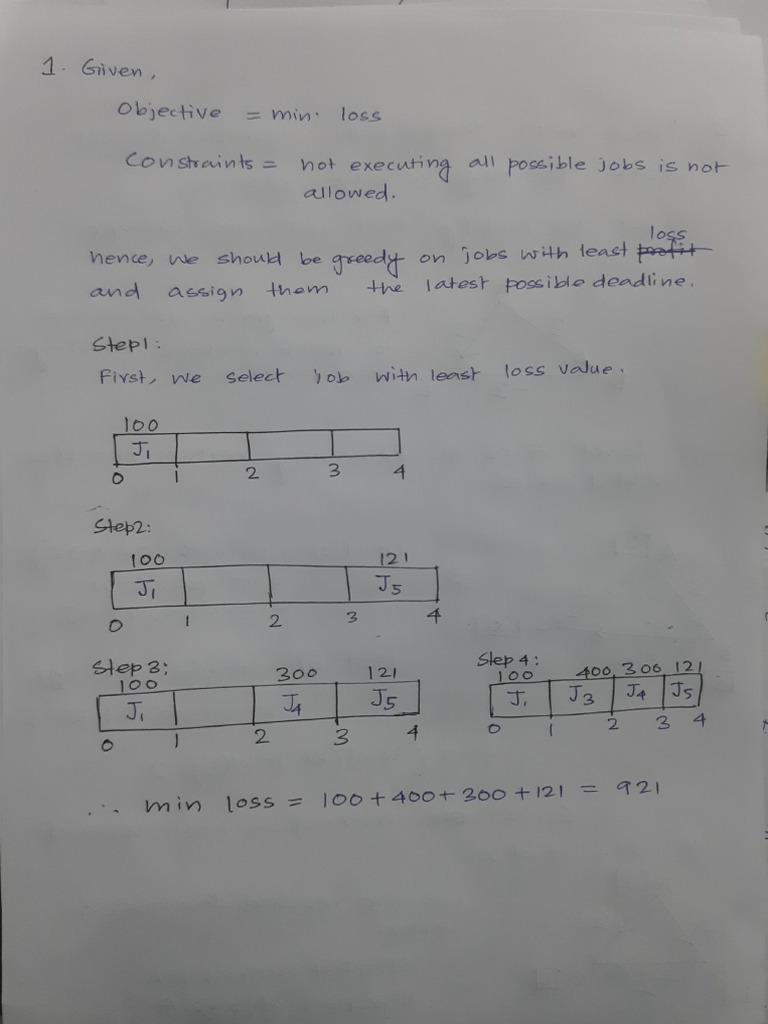 1. Given,
Objective = min. loss
Constraints = not executing all possible jobs is not
allowed.
loss
hence, we should be greedy on jobs with least profit
and assign them the latest possible deadline.
Step1:
First, we select job with least loss value.
100
J1
0 1 2 3 4
Step2:
100 121
J1 J5
0 1 2 3 4
Step 3:
100 300 121
J1 J4 J5
0 1 2 3 4
Step 4:
100 400 300 121
J1 J3 J4 J5
0 1 2 3 4
∴ min loss = 100 + 400 + 300 + 121 = 921